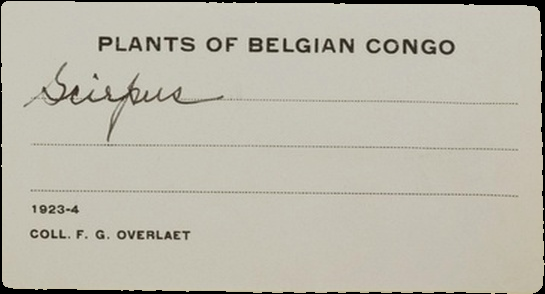 PLANTS OF BELGIAN CONGO
Scirpus
1923-4
COLL. F. G. OVERLAET